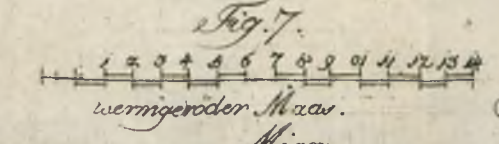 Fig. 7.
1 2 3 4 5 6 7 8 9 01 11 12 13 14
wernigeroder Maas.